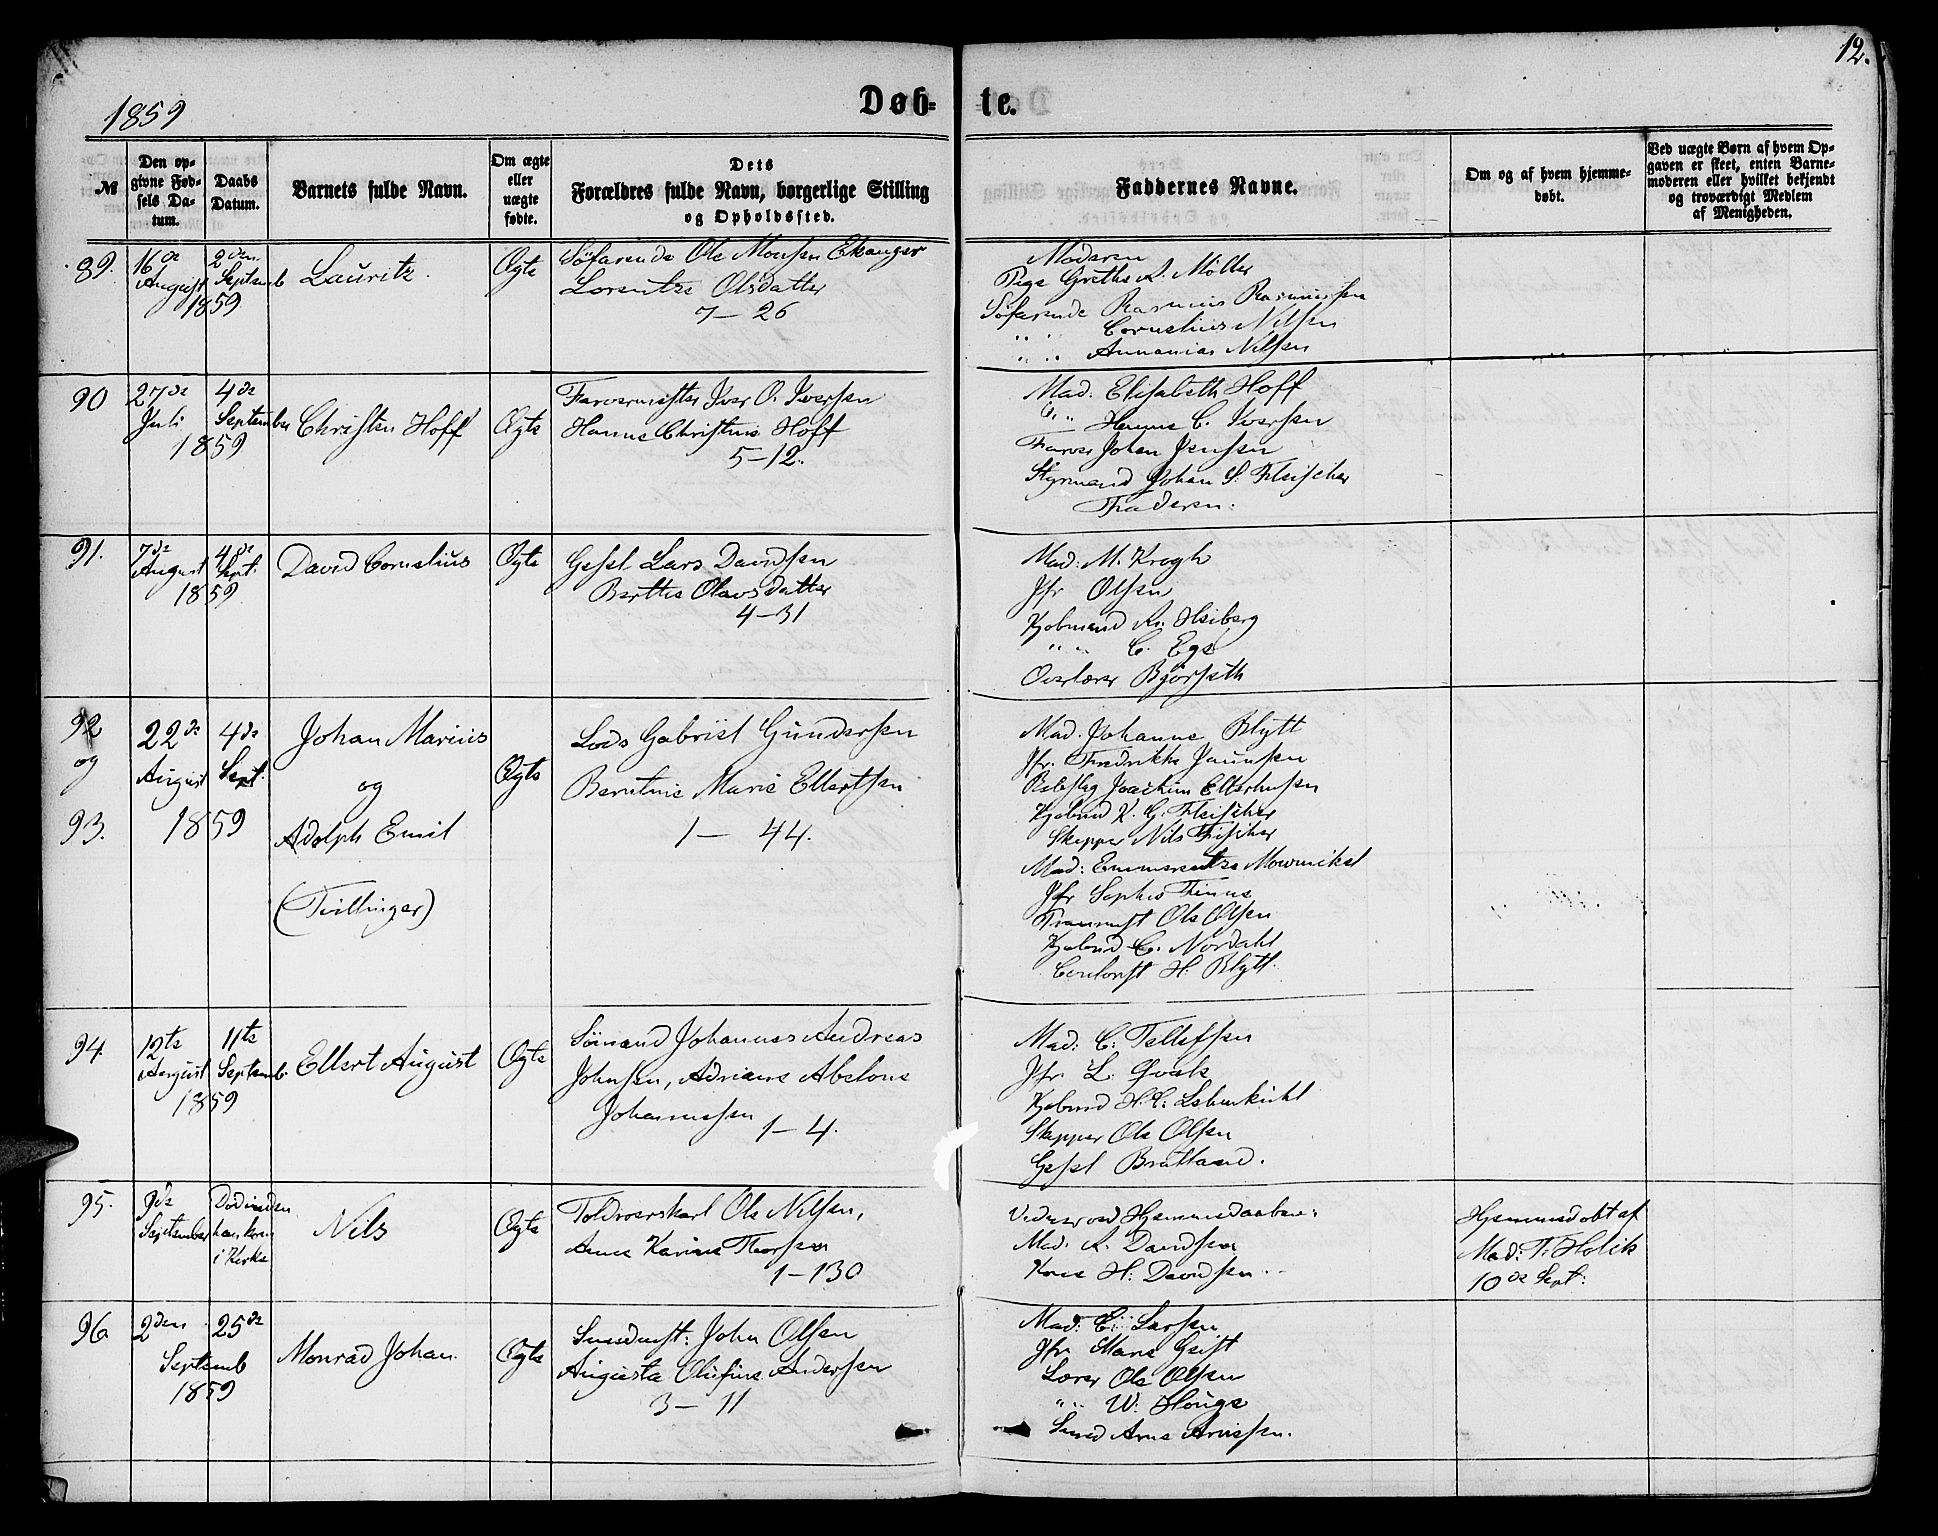 12.
1859
Døb-
te.
№
Den op-
givne Fød-
sels Da-
tum.
Daabs
Datum.
Barnets fulde Navn.
Om ægte
eller
uægte
fødte.
Dets
Forældres fulde Navn, borgerlige Stilling
og Opholdssted.
Faddernes Navne.
Om og af hvem hjemme-
døbt.
Ved uægte Børn af hvem Op-
gaven er skeet, enten Barne-
moderen eller hvilket bekjendt
og troværdigt Medlem
af Menigheden.
89.
16de
August
2den
Septemb
1859
Lauritz
Ægte
Søfarende Ole Monsen Ekanger
Lorentze Olsdatter
7-26
Moderen
Pige Grethe A. Möller
Søfarende Rasmus Rasmussen
" " Cornelius Nilsen
" " Annanias Nilsen
90
27de
Juli
4de
September
1859
Christen Hoff
Ægte
Farvermester Iver O. Iversen
Hanne Christine Hoff
5-12.
Mad. Elisabeth Hoff
" " Hanne C. Iversen
Farver Johan Jensen
Styrmand Johan S. Fleischer
Faderen.
91.
7de
August
4de
Sept.
1859
David Cornelius
Ægte
Gesel Lars Davidsen
Berthe Olavsdatter
4-31
Mad: M. Krogh
Jfr Olsen
Kjøbmand A. Heiberg
" " C. Ege
Overlærer Bjørseth
92
og
93.
22de
August
4de
Sept.
1859
Johan Marius
og
Adolph Emil
(Tvillinger)
Ægte
Lods Gabriel Gundersen
Berntine Marie Ellertsen
1- 44.
Mad. Johanne Blytt
Jfr. Fredrikke Jannsen
Joachim Ellerhusen
Kjøbmd K. G. Fleischer
Skipper Nils Fischer
Mad: Emmerentze Mowinkel
Jfr Sophie Finne
Ole Olsen
Kjøbmd C. Nordahl
H. Blytt.
94.
12te
August
11te
Septemb.
1859
Ellert August
Ægte
Sømand Johannes Andreas
Johnsen, Adriane Abelone
Johannessen 1-4.
Mad: C. Tellefsen
Jfr. L. Qvale
Kjøbmd H. C. Lehmkuhl
Skipper Ole Olsen
Gesel Bratland.
95.
9de
September
Død inden
han kom
i Kirke
Nils
Ægte
Toldroerskarl Ole Nilsen,
Anne Karine Thorsen
1-130
Vidner ved Hjemmedaaben:
Mad. A. Davidsen
Kone H: Davidsen
Hjemmedøbt af
Mad: T. Holck
10de Sept:
96.
2den
Septemb
25de
1859
Monrad Johan
Ægte
Smedmst: John Olsen
Augusta Olufine Andersen
3- 11
Mad: E. Larsen
Jfr Marie Geist
Lærer Ole Olsen
" " W. Houge
Smed Arne Arnesen.